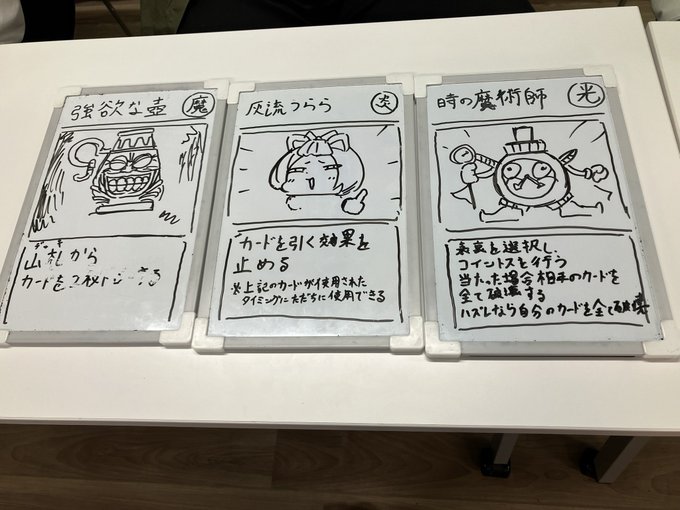 強欲な壺
魔
デッキ
山札から
カードを2枚ドローする
灰流うらら
炎
カードを引く効果を
止める
※上記のカードが使用された
タイミングにただちに使用できる
時の魔術師
光
表裏を選択し、
コイントスを行う
当たった場合相手のカードを
全て破壊する
ハズレなら自分のカードを全て破壊